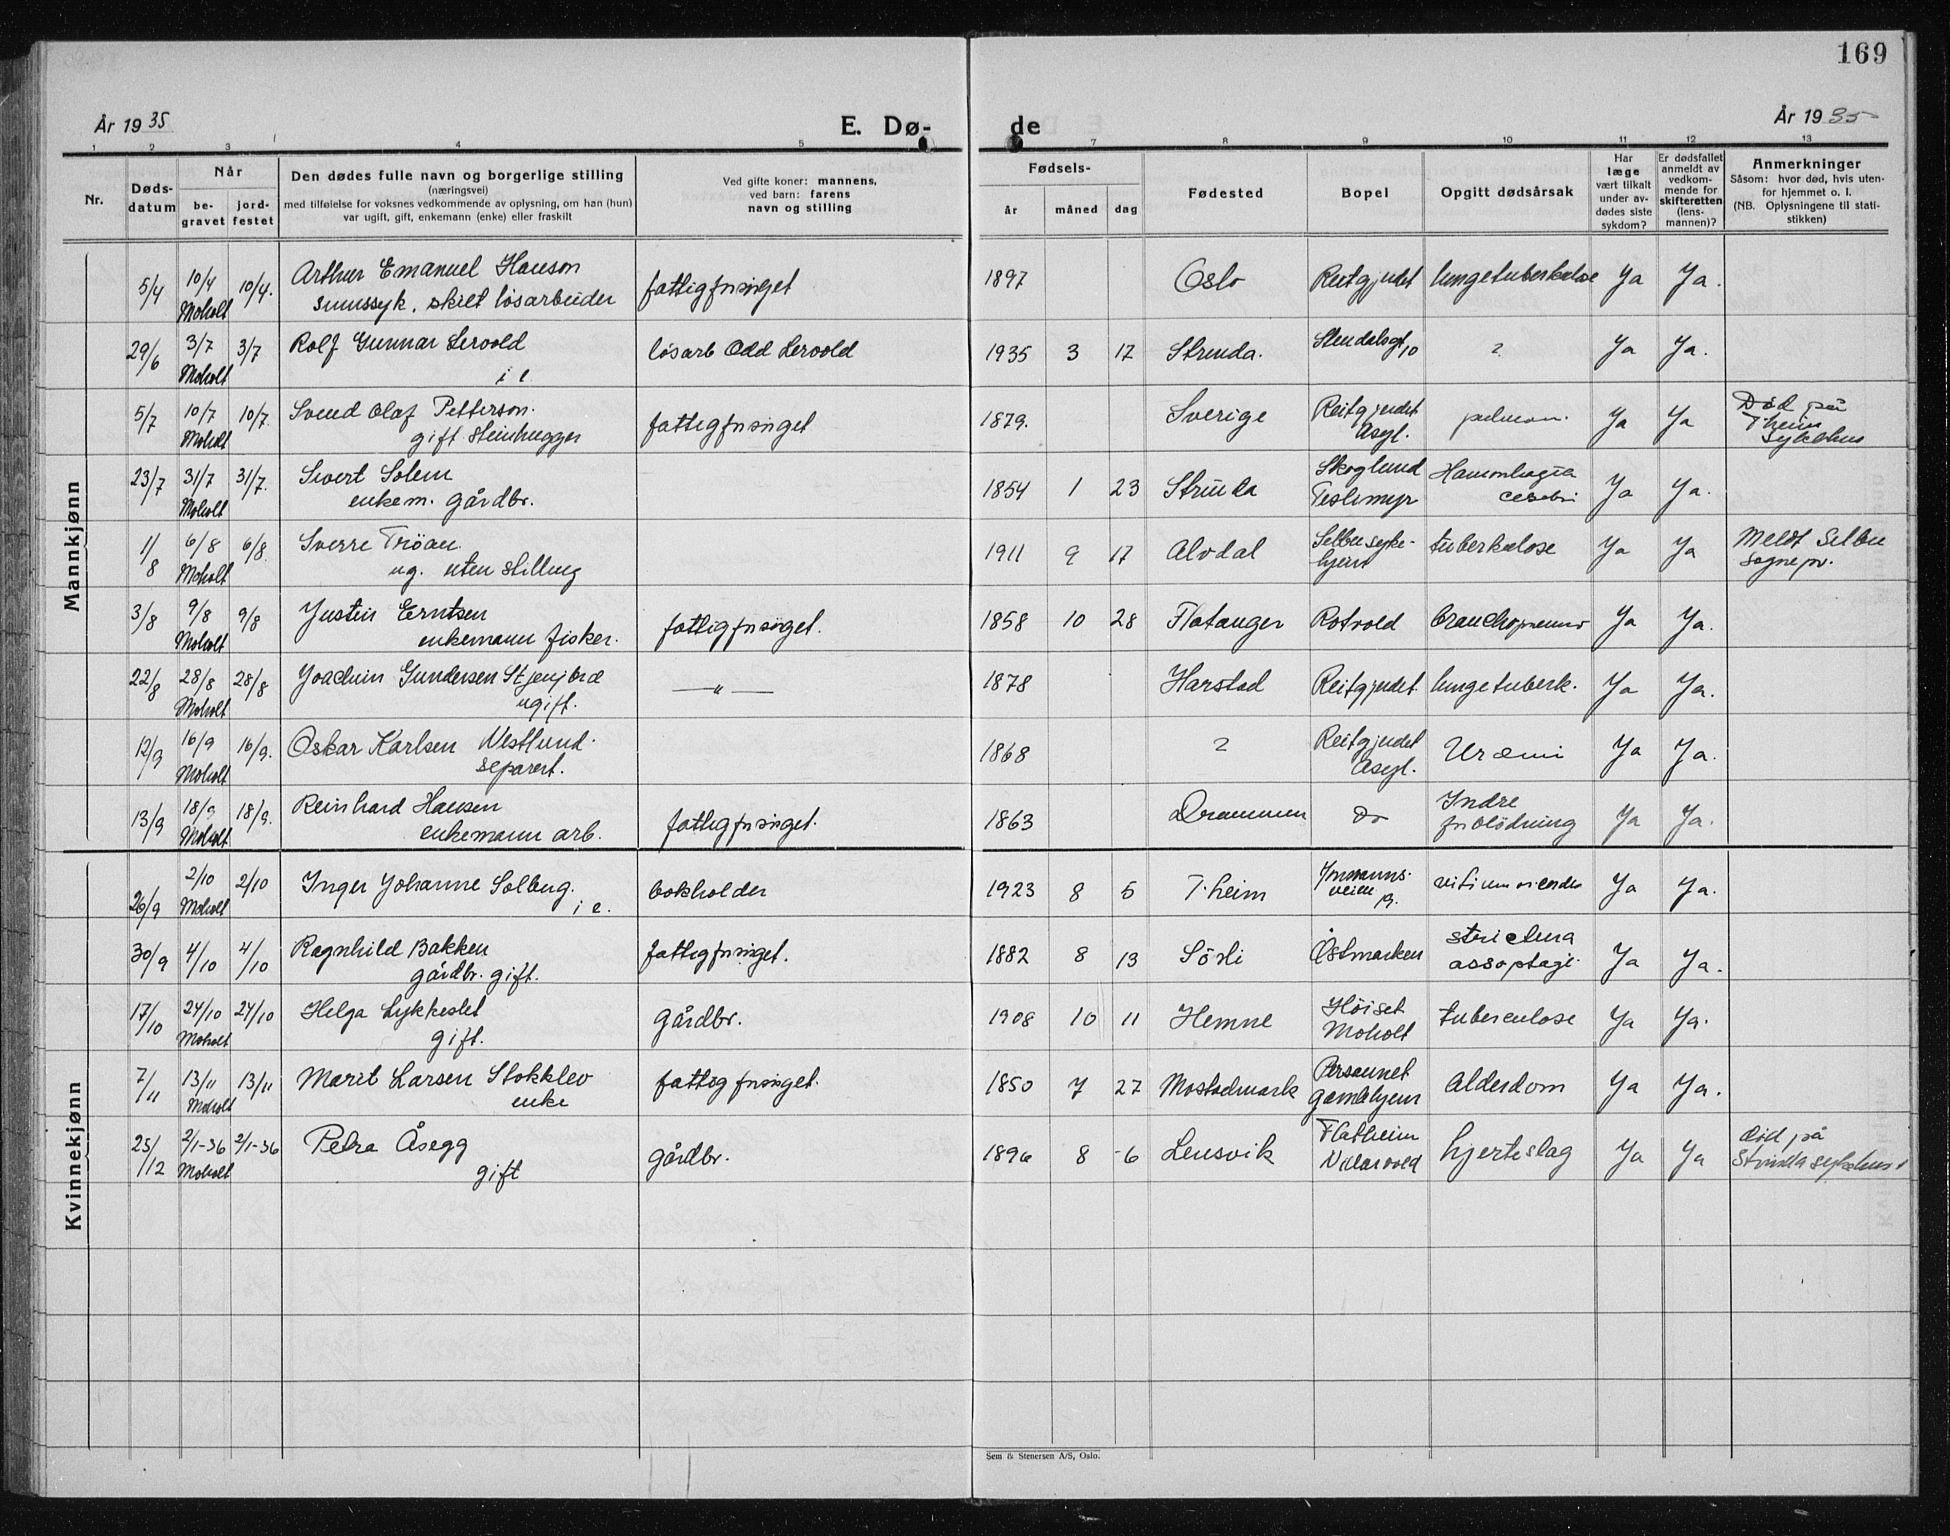 169
År 1935 E. Dø- de År 1935
1 2 3 4 5 7 8 9 10 11 12 13
Nr. Døds-datum Når be-gravet jord-festet
Den dødes fulle navn og borgerlige stilling
(næringsvei)
med tilføielse for voksnes vedkommende av oplysning, om han (hun)
var ugift, gift, enkemann (enke) eller fraskilt
Ved gifte koner: mannens,
ved barn: farens
navn og stilling
Fødsels- år måned dag
Fødested Bopel Opgitt dødsårsak
Har læge vært tilkalt under av-dødes siste sykdom?
Er dødsfallet anmeldt av vedkom-mende for skifteretten (lens-mannen)?
Anmerkninger
Såsom: hvor død, hvis uten-
for hjemmet o. l.
(NB. Oplysningene til stati-
stikken)
Mannkjønn
5/4 10/4 Moholt 10/4. Arthur Emanuel Hanson fattigforsørget 1897 Oslo Reitgjerdet lungetuberkulose Ja Ja.
sinnssyk. løsarbeider
29/6 3/7 Moholt 3/7 Rolf Gunnar Lervold løsarb Odd Lervold 1935 3 17 Strinda. 10 ? Ja Ja.
5/7 10/7 Moholt 10/7. Svend Olaf Petterson. fattigforsørget 1879. Sverige Reitgjerdet Asyl. Ja Ja Død på T.heim sykehus
gift steinhugger
23/7 31/7 Moholt 31/7. Sivert Solem 1854 1 23 Strinda Skoglund Teslimyr Hæmorrhagia cerebri Ja Ja.
enkem. gårdbr.
1/8 6/8 Moholt 6/8. Sverre Trøan 1911 9 17 Alvdal Selbu syke-hjem tuberkulose Ja Ja Meldt Selbu sognepr.
ug. uten stilling
3/8 9/8 Moholt 9/8 Justin Erntsen fattigforsørget. 1858 10 28 Flatanger Rotvold Ja Ja.
enkemann fisker.
22/8 28/8 Moholt 28/8 Joachim Gundersen — „ — 1878 Harstad Reitgjerdet lungetuberk. Ja Ja.
ugift.
12/9 16/9 Moholt 16/9. Oskar Karlsen Westlund. 1868 ? Reitgjerdet Asyl. Uræmi Ja Ja.
separert.
13/9 18/9 Moholt 18/9. Reinhard Hansen fattigforsørget. 1863 Drammen Do Indre forblödning Ja Ja.
enkemann arb.
Kvinnekjønn
26/9 2/10 Moholt 2/10 Inger Johanne Solberg. bokholder 1923 8 5 T.heim vitium cordis Ja Ja.
30/9 4/10 4/10 Ragnhild Bakken fattigforsørget. 1882 8 13 Sörli Östmarken Ja Ja.
gårdbr. gift.
17/10 24/10 Moholt 24/10 Helga Lykkeslet gårdbr. 1908 10 11 Hemne Höiset Moholt tuberculose Ja Ja.
gift.
7/11 13/11 Moholt 13/11 Marit Larsen Stokklev fattigforsørget. 1850 7 27 Mostadmark Persaunet gamlehjem Alderdom Ja Ja.
enke
25/12 2/1-36 Moholt 2/1-36 Petra Åsegg gårdbr. 1896 8 6 Lensvik Flatheim hjerteslag Ja Ja død på Strinda sykehus
gift
Sem & Stenersen A/S, Oslo.